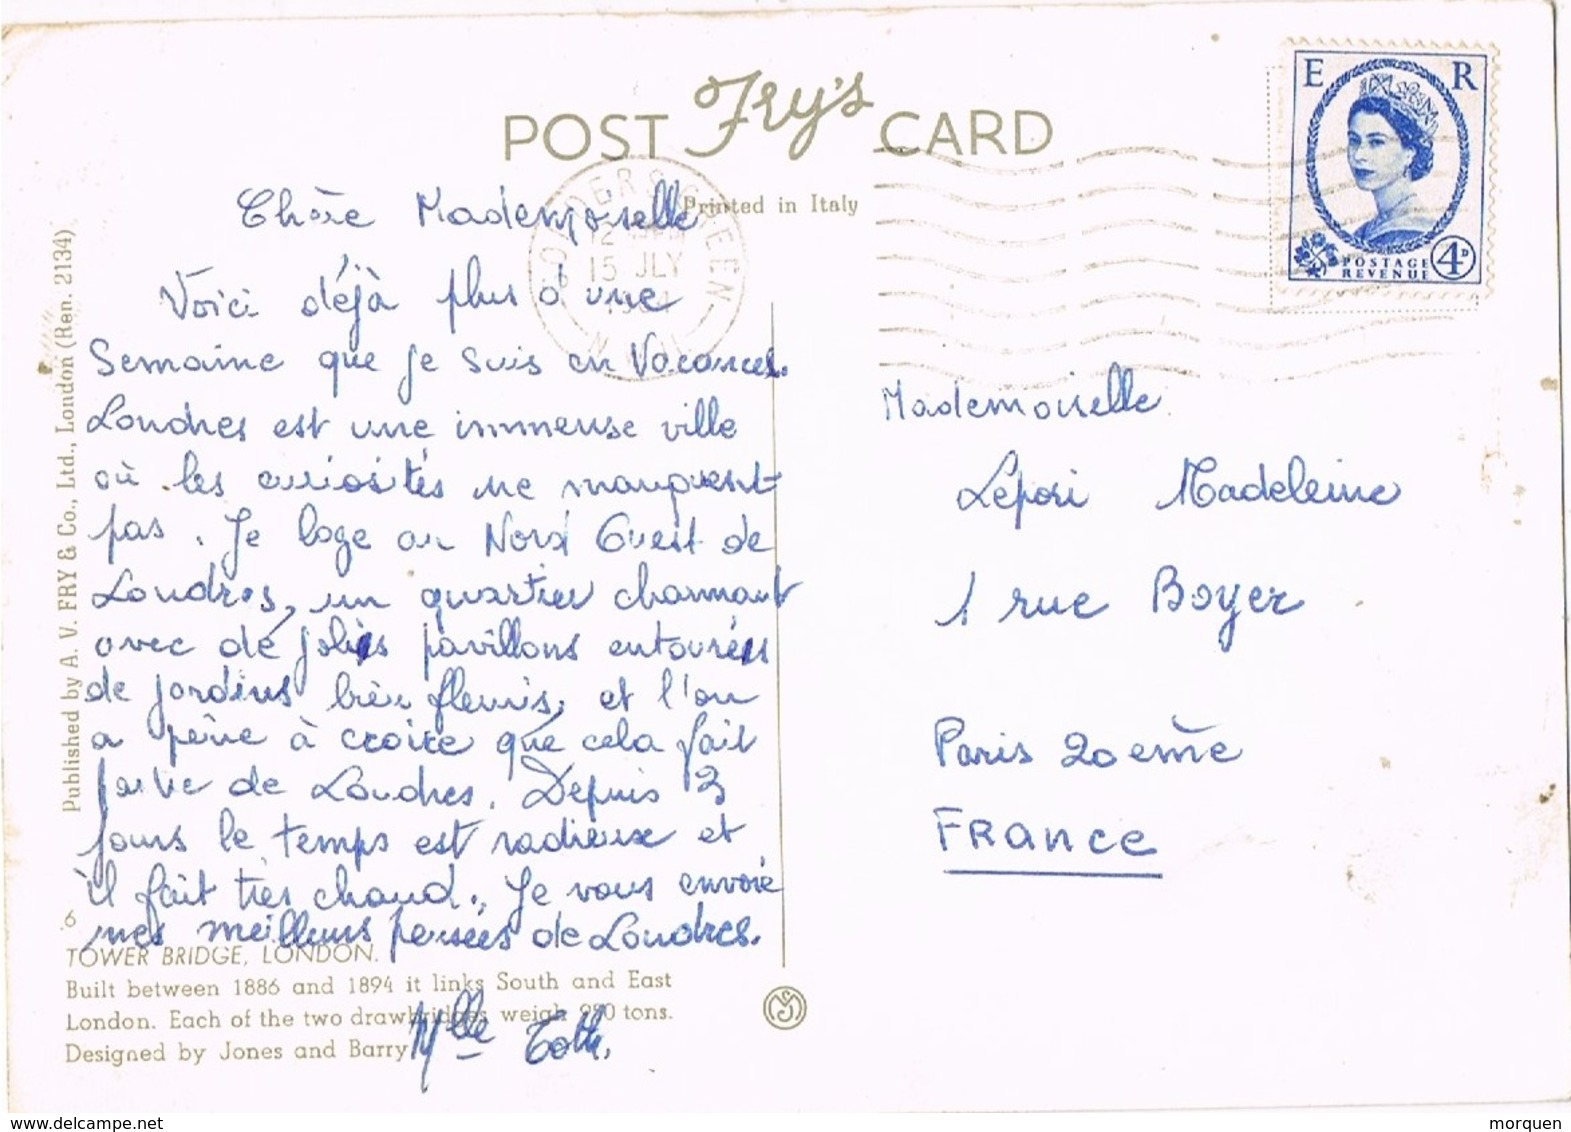 POST Fry's CARD
Printed in Italy
E R
POSTAGE
REVENUE
4D
GOLDERS GREEN
15 JLY
Chère Mademoiselle
Voici déjà plus d'une
Semaine que je suis en Vacances.
Londres est une immense ville
où les curiosités ne manquent
pas. Je loge au Nord Ouest de
Londres, un quartier charmant
avec de jolis pavillons entourés
de jardins bien fleuris, et l'on
a peine à croire que cela fait
partie de Londres. Depuis 3
jours le temps est radieux et
il fait très chaud. Je vous envoie
mes meilleurs pensées de Londres.
Mlle Toth.
Mademoiselle
Lepori Madeleine
1 rue Boyer
Paris 20 eme
FRANCE
Published by A. V. FRY & Co., Ltd., London (Ren. 2134)
6
TOWER BRIDGE, LONDON.
Built between 1886 and 1894 it links South and East
London. Each of the two drawbridges weigh tons.
Designed by Jones and Barry
morquen